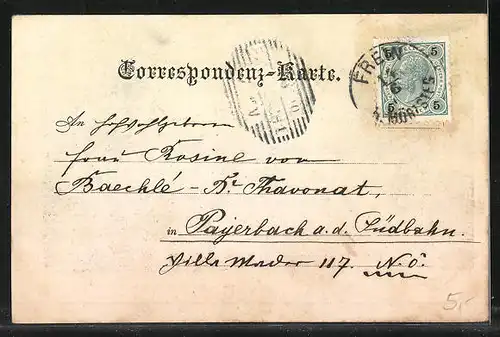 Correspondenz-Karte.
5 5
5 5
An Hochwohlgeboren
Frau Rosine von
Baechlé - Br. Thavonat,
in Payerbach a.d. Südbahn.
Villa Mader 117. N.Ö.
5,-